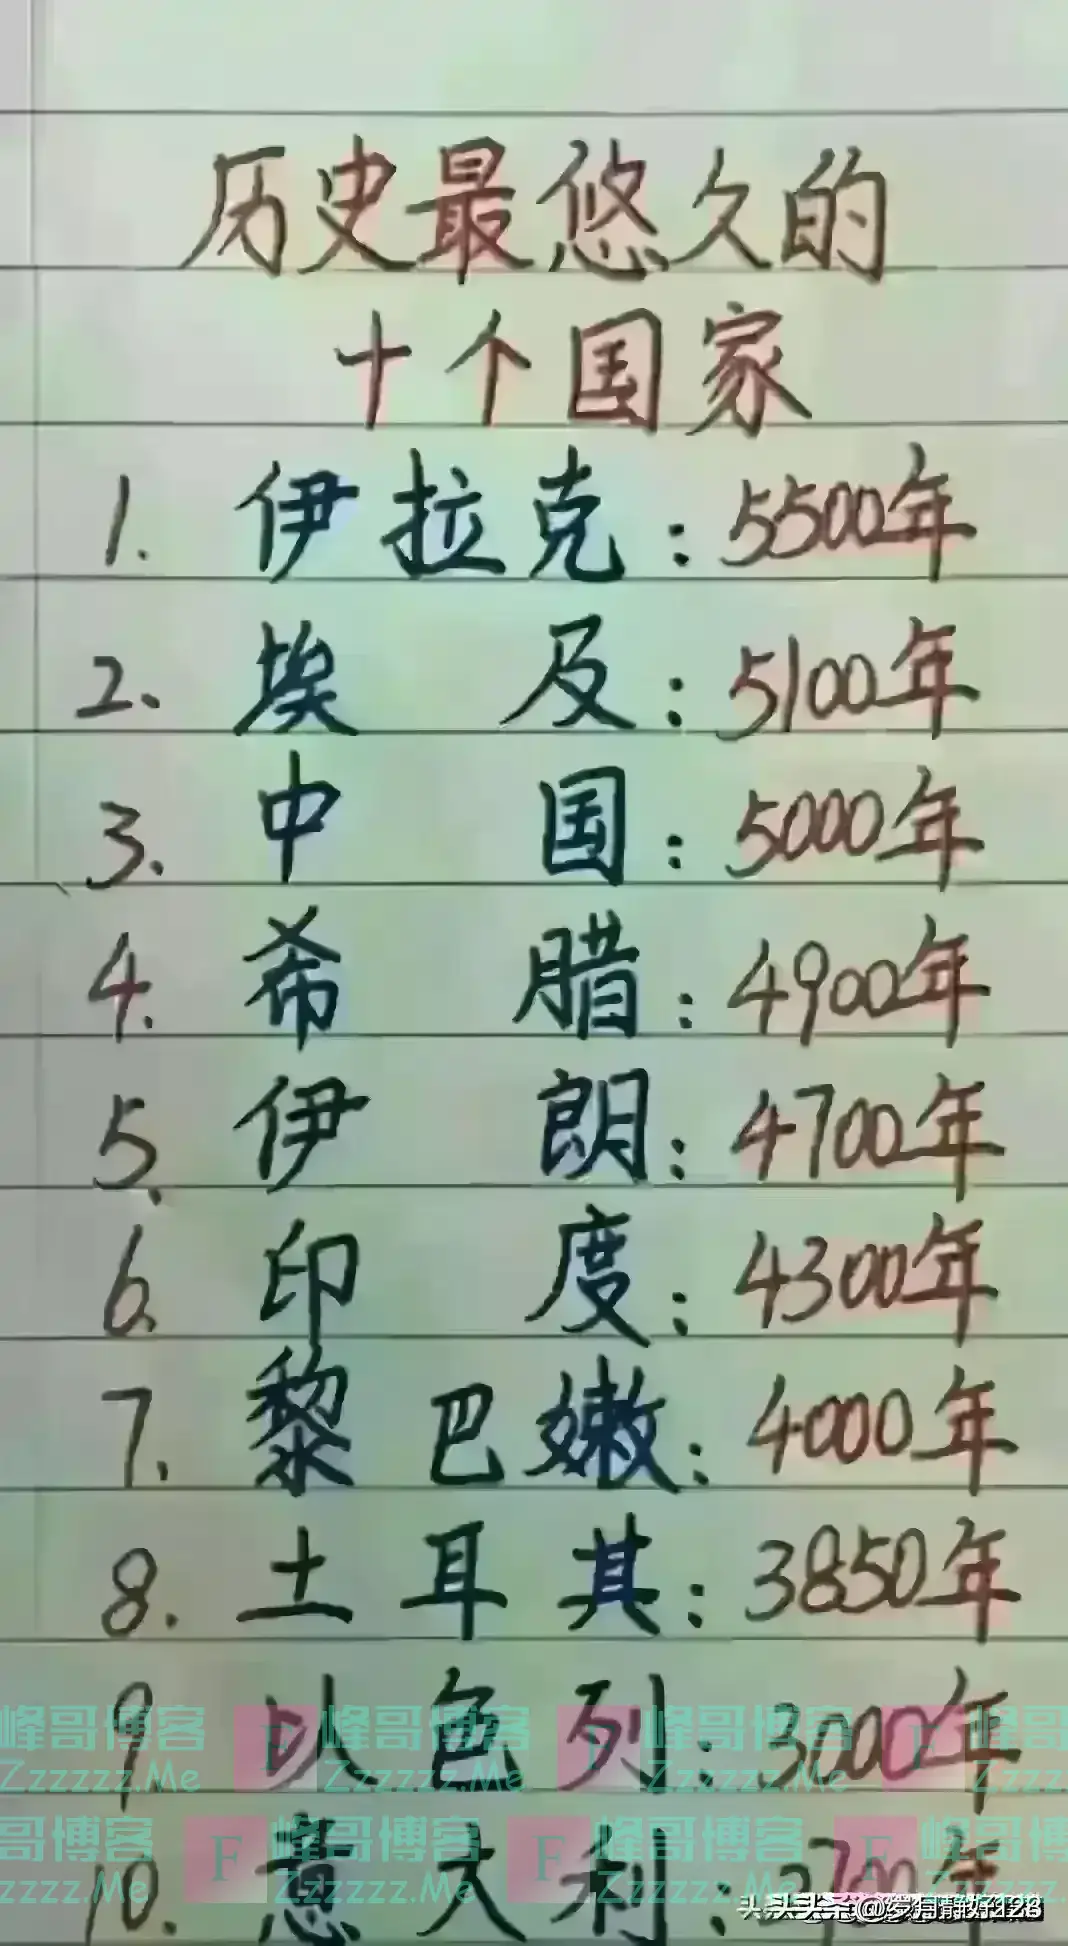 历史最悠久的
十个国家
1. 伊拉克：5500年
2. 埃及：5100年
3. 中国：5000年
4. 希腊：4900年
5. 伊朗：4700年
6. 印度：4300年
7. 黎巴嫩：4000年
8. 土耳其：3850年
9. 以色列：3000年
峰哥博客 F 峰哥博客 F 峰哥博客 F 峰哥博客
Zzzzzz.Me Zzzzzz.Me Zzzzzz.Me Zzzzz
10. 意大利：2700年
峰哥博客 F 峰哥博客 F 峰哥博客 F 峰哥博客
Zzzzzz.Me Zzzzzz.Me Zzzzzz.Me
头条